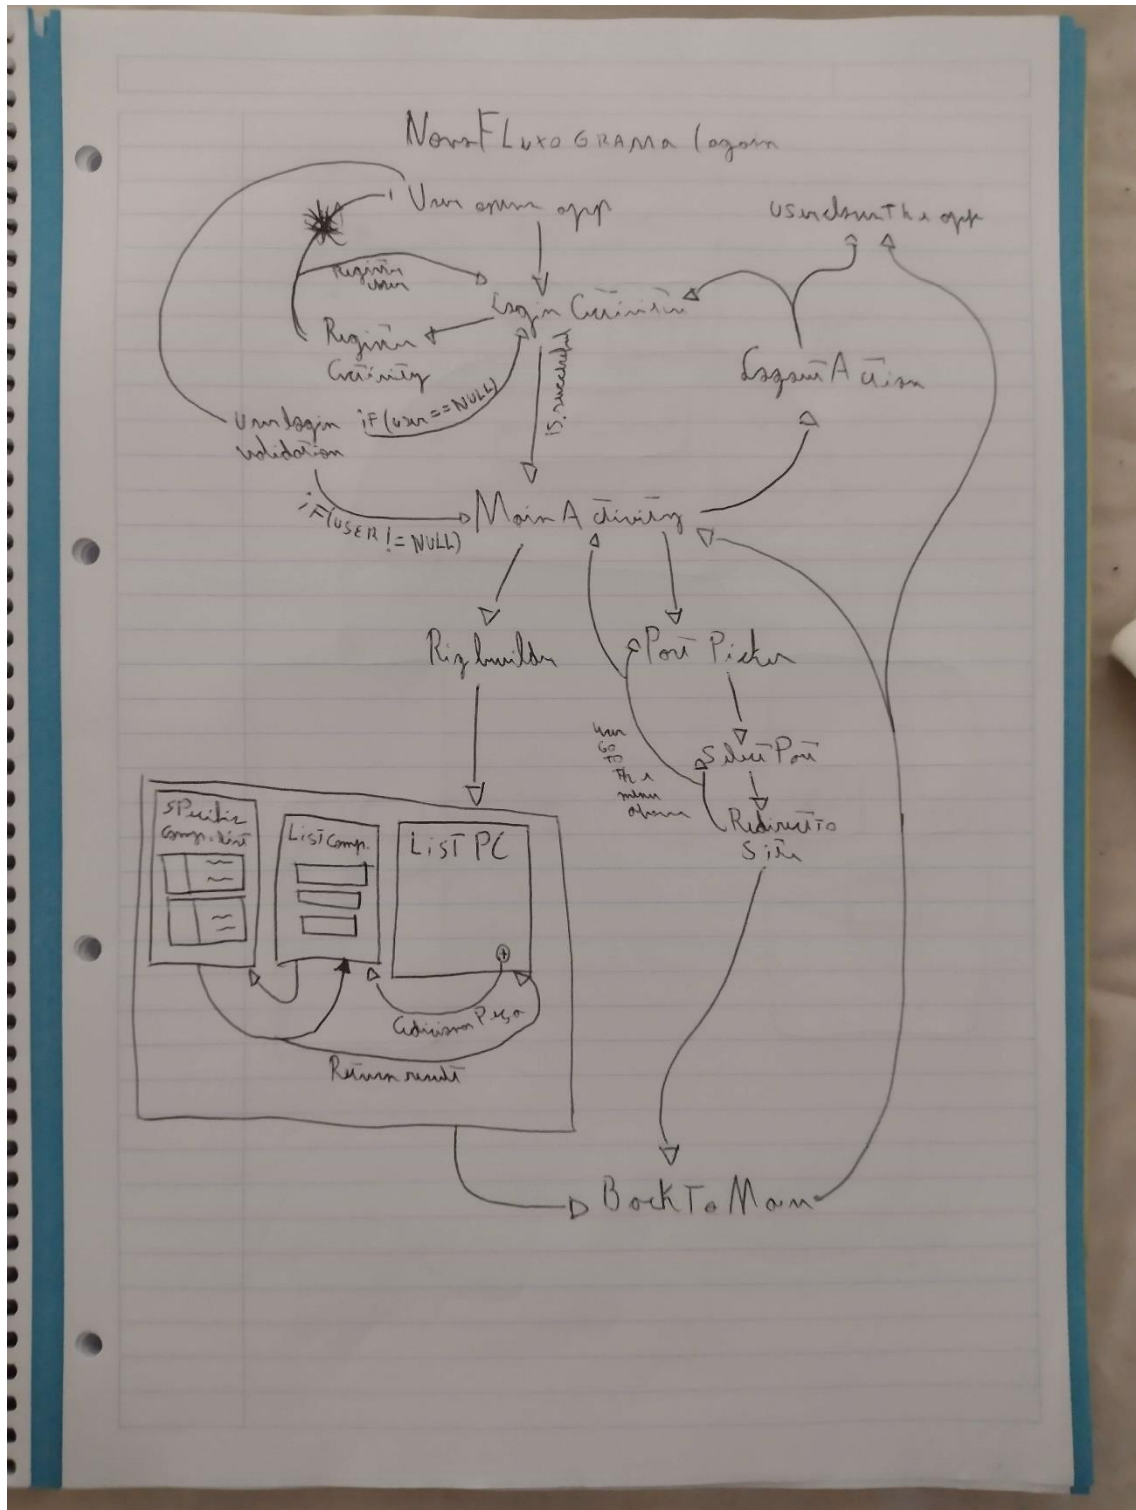 Novo FLUXOGRAMA (again
User opens app
user closes The app
register
user
Login Activity
Register
Activity
is.successful
Logout Action
User login
validation
if(user==NULL)
if(USER!=NULL)
Main Activity
Rig builder
Part Picker
user
Go
To
The
menu
above
Select Part
Redirect To
Site
SPecific
Comp. List
List Comp.
LisT PC
Adicionar Peça
Return result
Back To Main